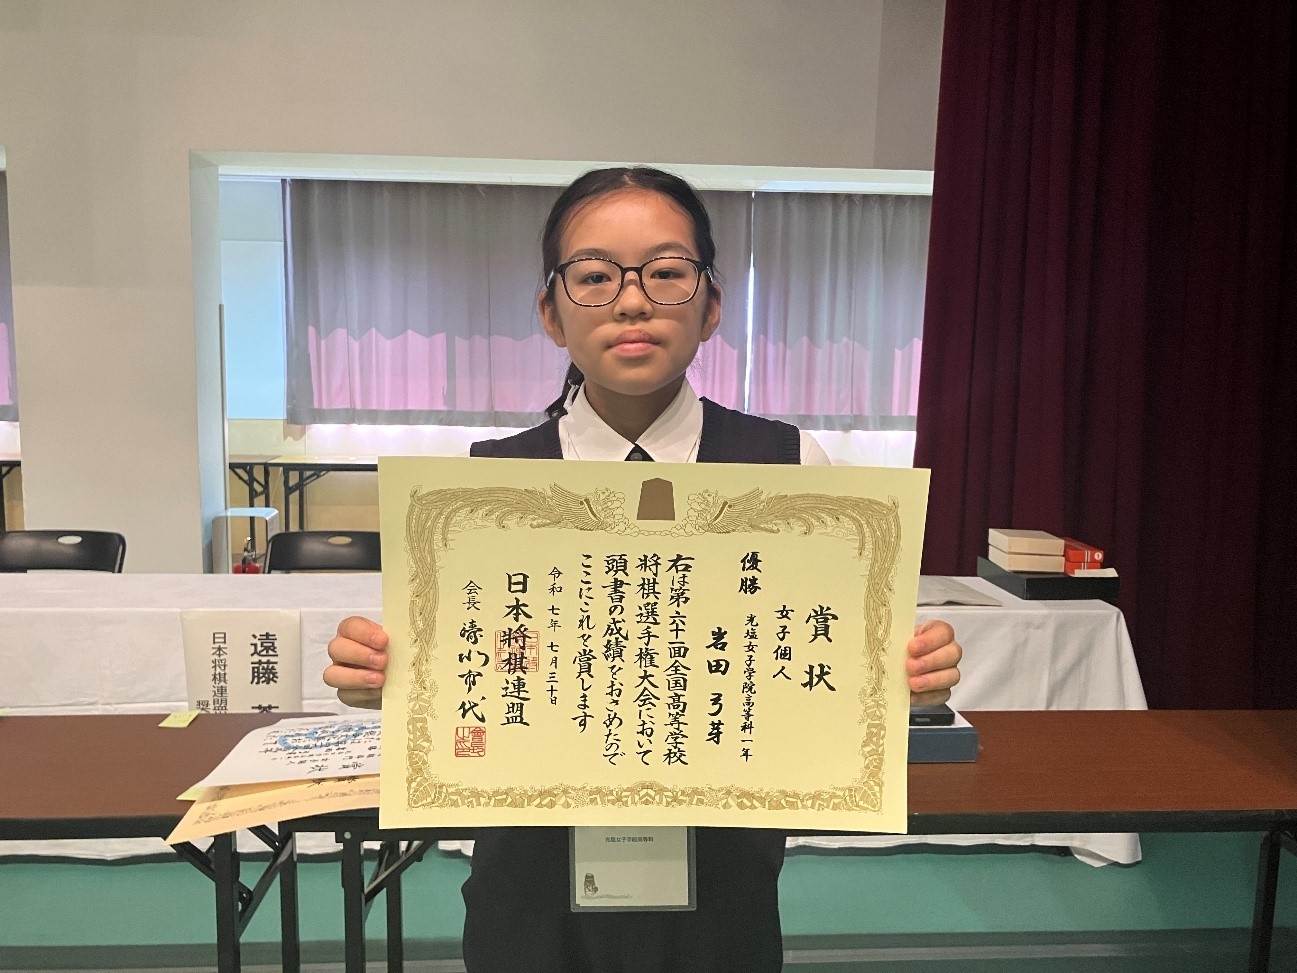 賞状
女子個人
優勝
光塩女子学院高等科一年
岩田弓芽
右は第六十一回全国高等学校
将棋選手権大会において
頭書の成績をおさめたので
ここにこれを賞します
令和七年七月三十日
日本將棋連盟
会長 清水市代
遠藤
日本将棋連盟
光塩女子学院高等科